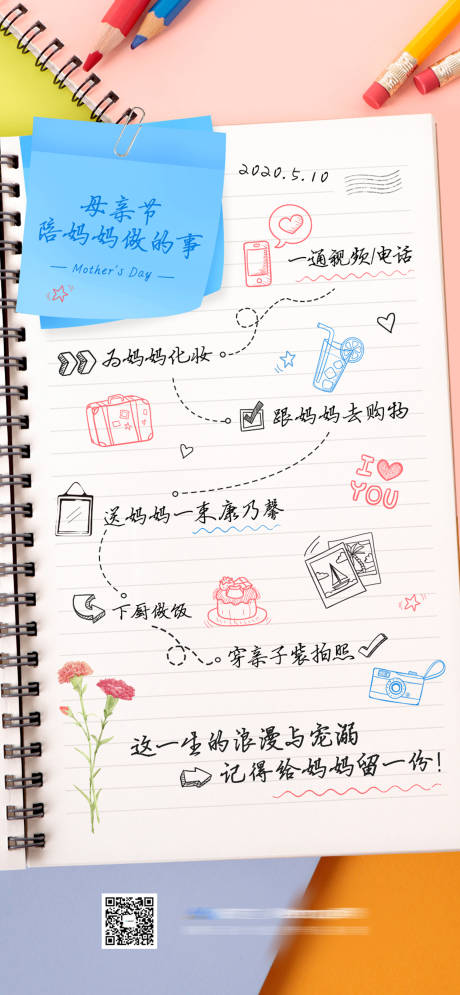 母亲节
陪妈妈做的事
— Mother's Day —
2020.5.10
一通视频/电话
为妈妈化妆
跟妈妈去购物
I
YOU
送妈妈一束康乃馨
下厨做饭
穿亲子装拍照
这一生的浪漫与宠溺
记得给妈妈留一份!